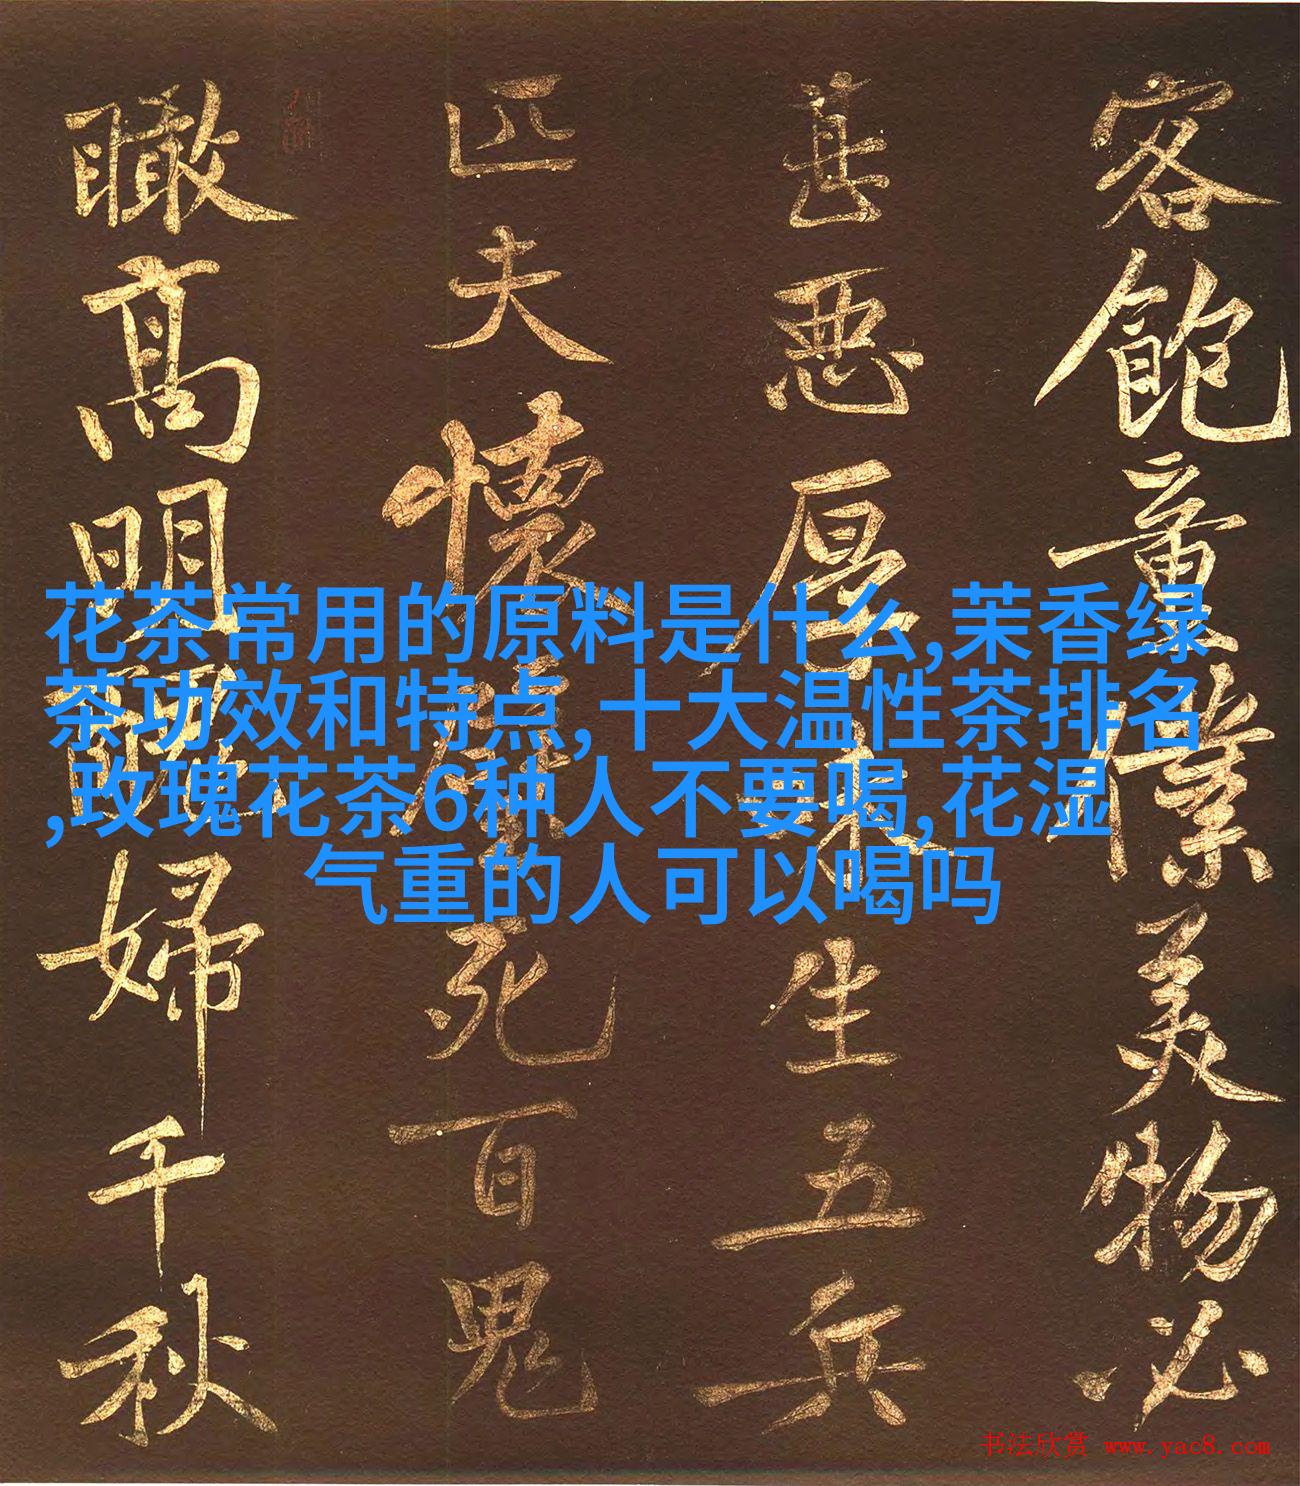 客飽童僕美物必
甚惡厚味生五兵
匹夫懷
死百鬼
瞰高明
婦千秋
花茶常用的原料是什么,茉香绿
茶功效和特点,十大温性茶排名
,玫瑰花茶6种人不要喝,花湿
气重的人可以喝吗
书法欣赏 www.yac8.com